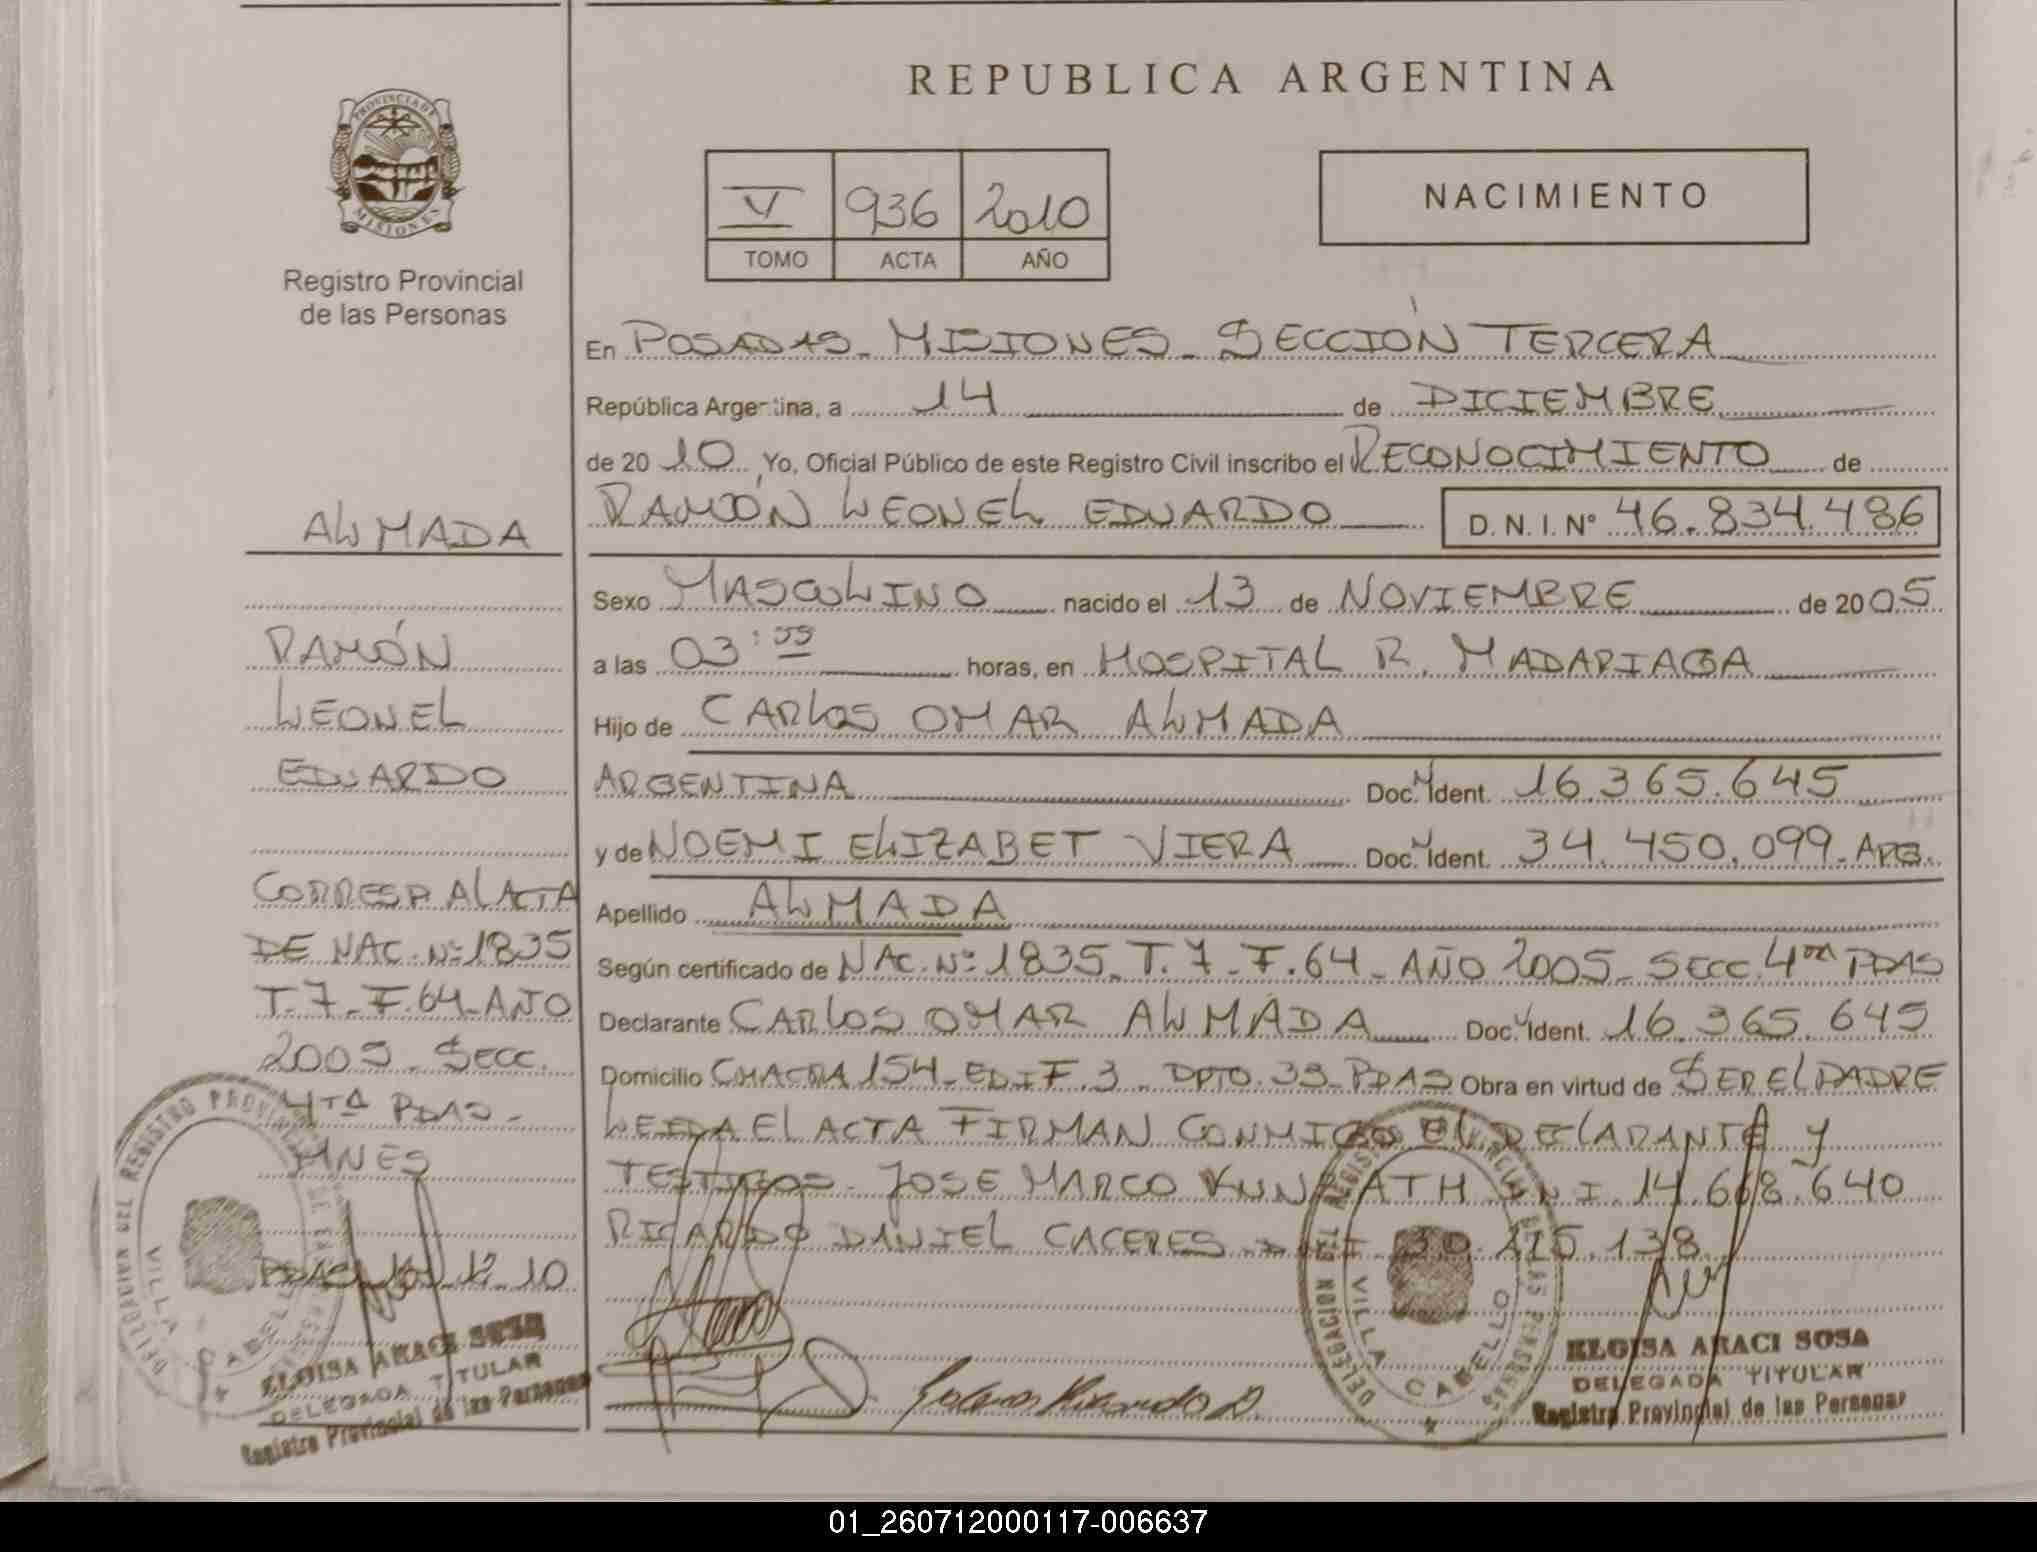 REPUBLICA ARGENTINA
PROVINCIA DE MISIONES
Registro Provincial
de las Personas
V 936 2010
TOMO ACTA AÑO
NACIMIENTO
En POSADAS - MISIONES - SECCIÓN TERCERA
República Argentina, a 14 de DICIEMBRE
de 2010 Yo, Oficial Público de este Registro Civil inscribo el RECONOCIMIENTO de
RAMÓN LEONEL EDUARDO D. N. I. N° 46.834.486
Sexo MASCULINO nacido el 13 de NOVIEMBRE de 2005
a las 03:55 horas, en HOSPITAL R. MADARIAGA
Hijo de CARLOS OMAR ALMADA
ARGENTINA Doc. Ident. 16.365.645
y de NOEMI ELIZABET VIERA Doc. Ident. 34.450.099 - ARG.
Apellido ALMADA
Según certificado de NAC. Nº 1835 - T. 7 - F. 64 - AÑO 2005 - SECC. 4ta PDAS
Declarante CARLOS OMAR ALMADA Doc. Ident. 16.365.645
Domicilio CHACRA 154 - EDIF. 3 - DPTO. 33 - PDAS Obra en virtud de SER EL PADRE
LEIDA EL ACTA FIRMAN CONMIGO EL DECLARANTE Y
TESTIGOS - JOSE MARCO KUNRATH DNI 14.668.640
RICARDO DANIEL CACERES - DNI 30.215.138
ALMADA
RAMÓN
LEONEL
EDUARDO
CORRESP AL ACTA
DE NAC. Nº 1835
T. 7 - F. 64 - AÑO
2005 - SECC.
4TA PDAS -
MNES
PDAS 12-10
REGISTRO PROVINCIAL DE LAS PERSONAS
DELEGACION VILLA CABELLO
ELOISA ARACI SOSA
DELEGADA TITULAR
Registro Provincial de las Personas
REGISTRO PROVINCIAL DE LAS PERSONAS
DELEGACION VILLA CABELLO
ELOISA ARACI SOSA
DELEGADA TITULAR
Registro Provincial de las Personas
01_260712000117-006637